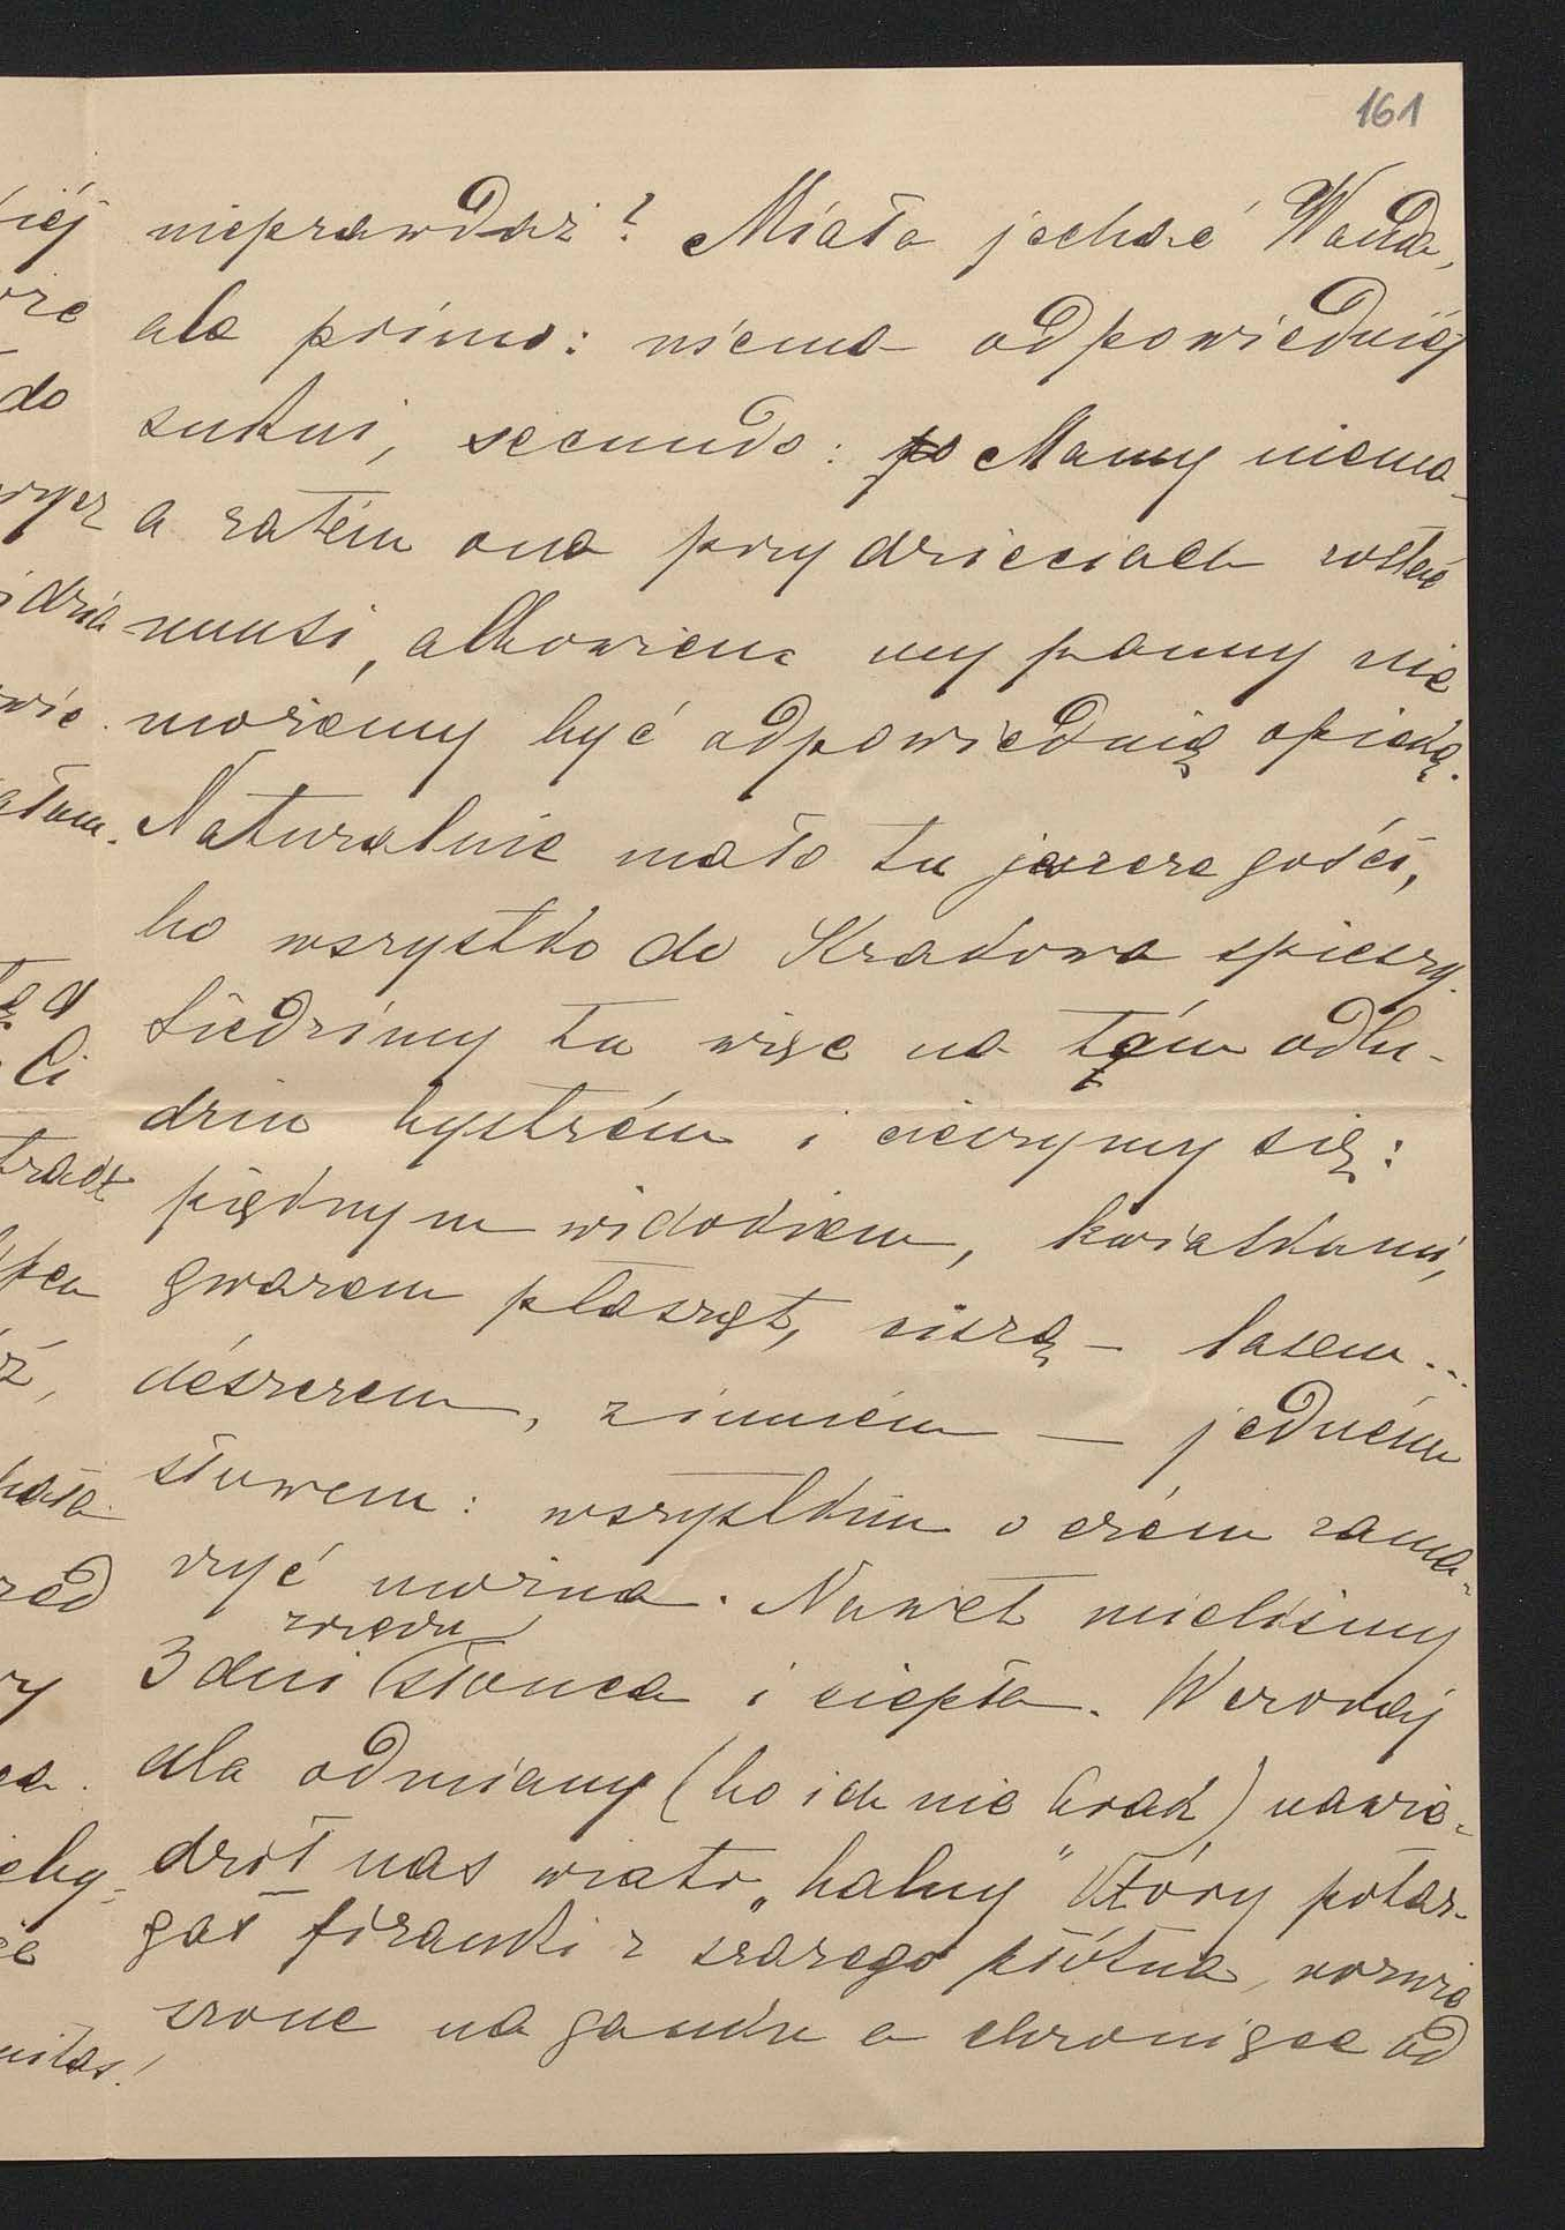 161
nieprawdaż? Miała jechać Wanda,
ale primo: niema odpowiedniéj
sukni, secundo: po Mamy niema
a zatém ona przy dzieciach zostać
musi, albowiem my panny nie
możemy być odpowiednią opieką.
Naturalnie mało tu jeszcze gości,
bo wszystko do Krakowa spieszy.
Siedzimy tu więc na tém odlu-
dziu bystrém i cieszymy się:
pięknym widokiem, kwiatkami,
gwarem ptasząt, ciszą — lasem...
désczem, zimném — jedném
słowem: wszystkiém o czém zama-
rzyć można. Nawet mieliśmy
zrzędu
3 dni słońca i ciepła. Wczoraj
dla odmiany (bo ich nie brak) nawie-
dził nas wiatr „halny" który potar-
gał firanki z szarego płótna, rozwie
szone na ganku a chroniące od
iéj
do
idzia
Ci
trakt
ył